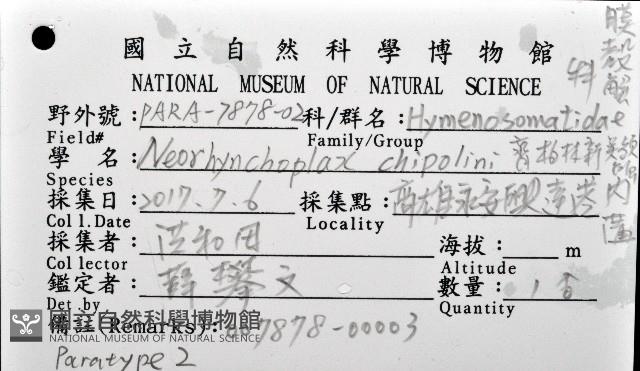 國立自然科學博物館
NATIONAL MUSEUM OF NATURAL SCIENCE
野外號：PARA-7878-02 科/群名：Hymenosomatidae 膜殼蟹科
Field# Family/Group
學名：Neorhynchoplax chipolini 齊柏林新
Species
採集日：2017.7.6 採集點：高雄永安興達港
Coll.Date Locality
採集者：洪和田 海拔： m
Collector Altitude
鑑定者： 文 數量：1
Det.by Quantity
備註(Remarks)： 7878-00003
國立自然科學博物館
NATIONAL MUSEUM OF NATURAL SCIENCE
Paratype 2